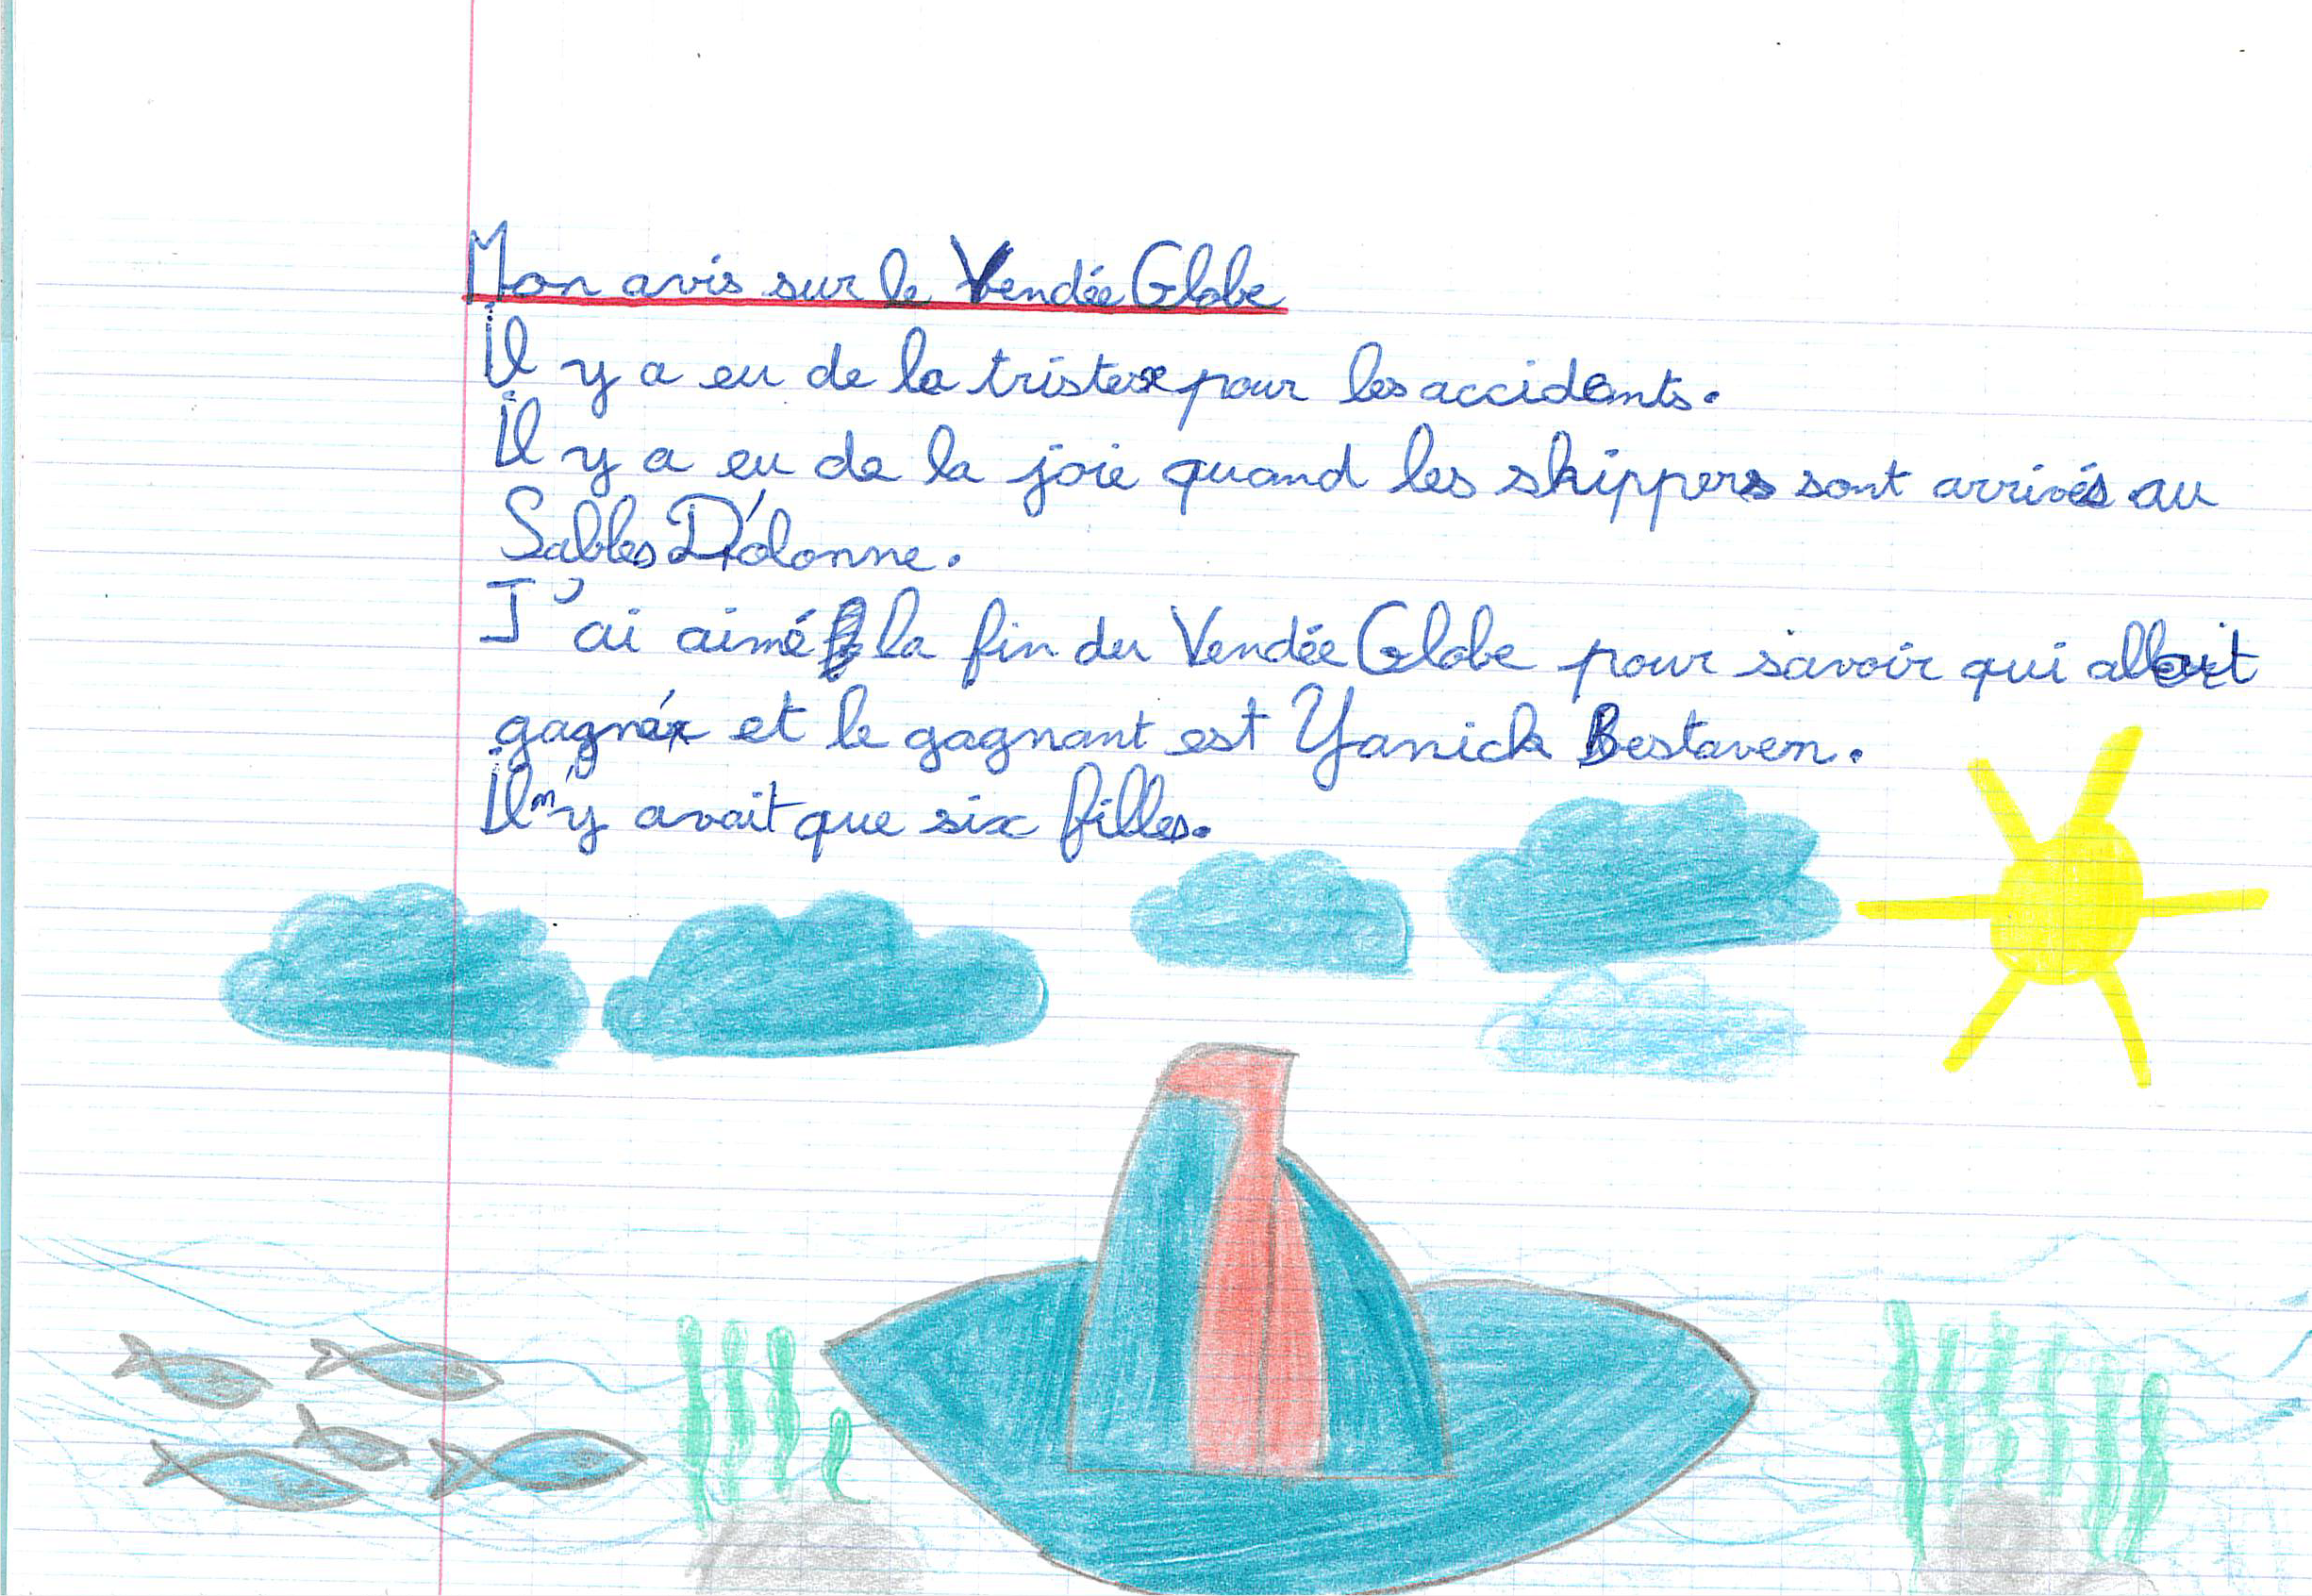 Mon avis sur le Vendée Globe
Il y a eu de la tristesse pour les accidents.
Il y a eu de la joie quand les skippers sont arrivés au
Sables D'olonne.
J'ai aimé la fin du Vendée Globe pour savoir qui allait
gagnér et le gagnant est Yanick Bestaven.
Il n'y avait que six filles.